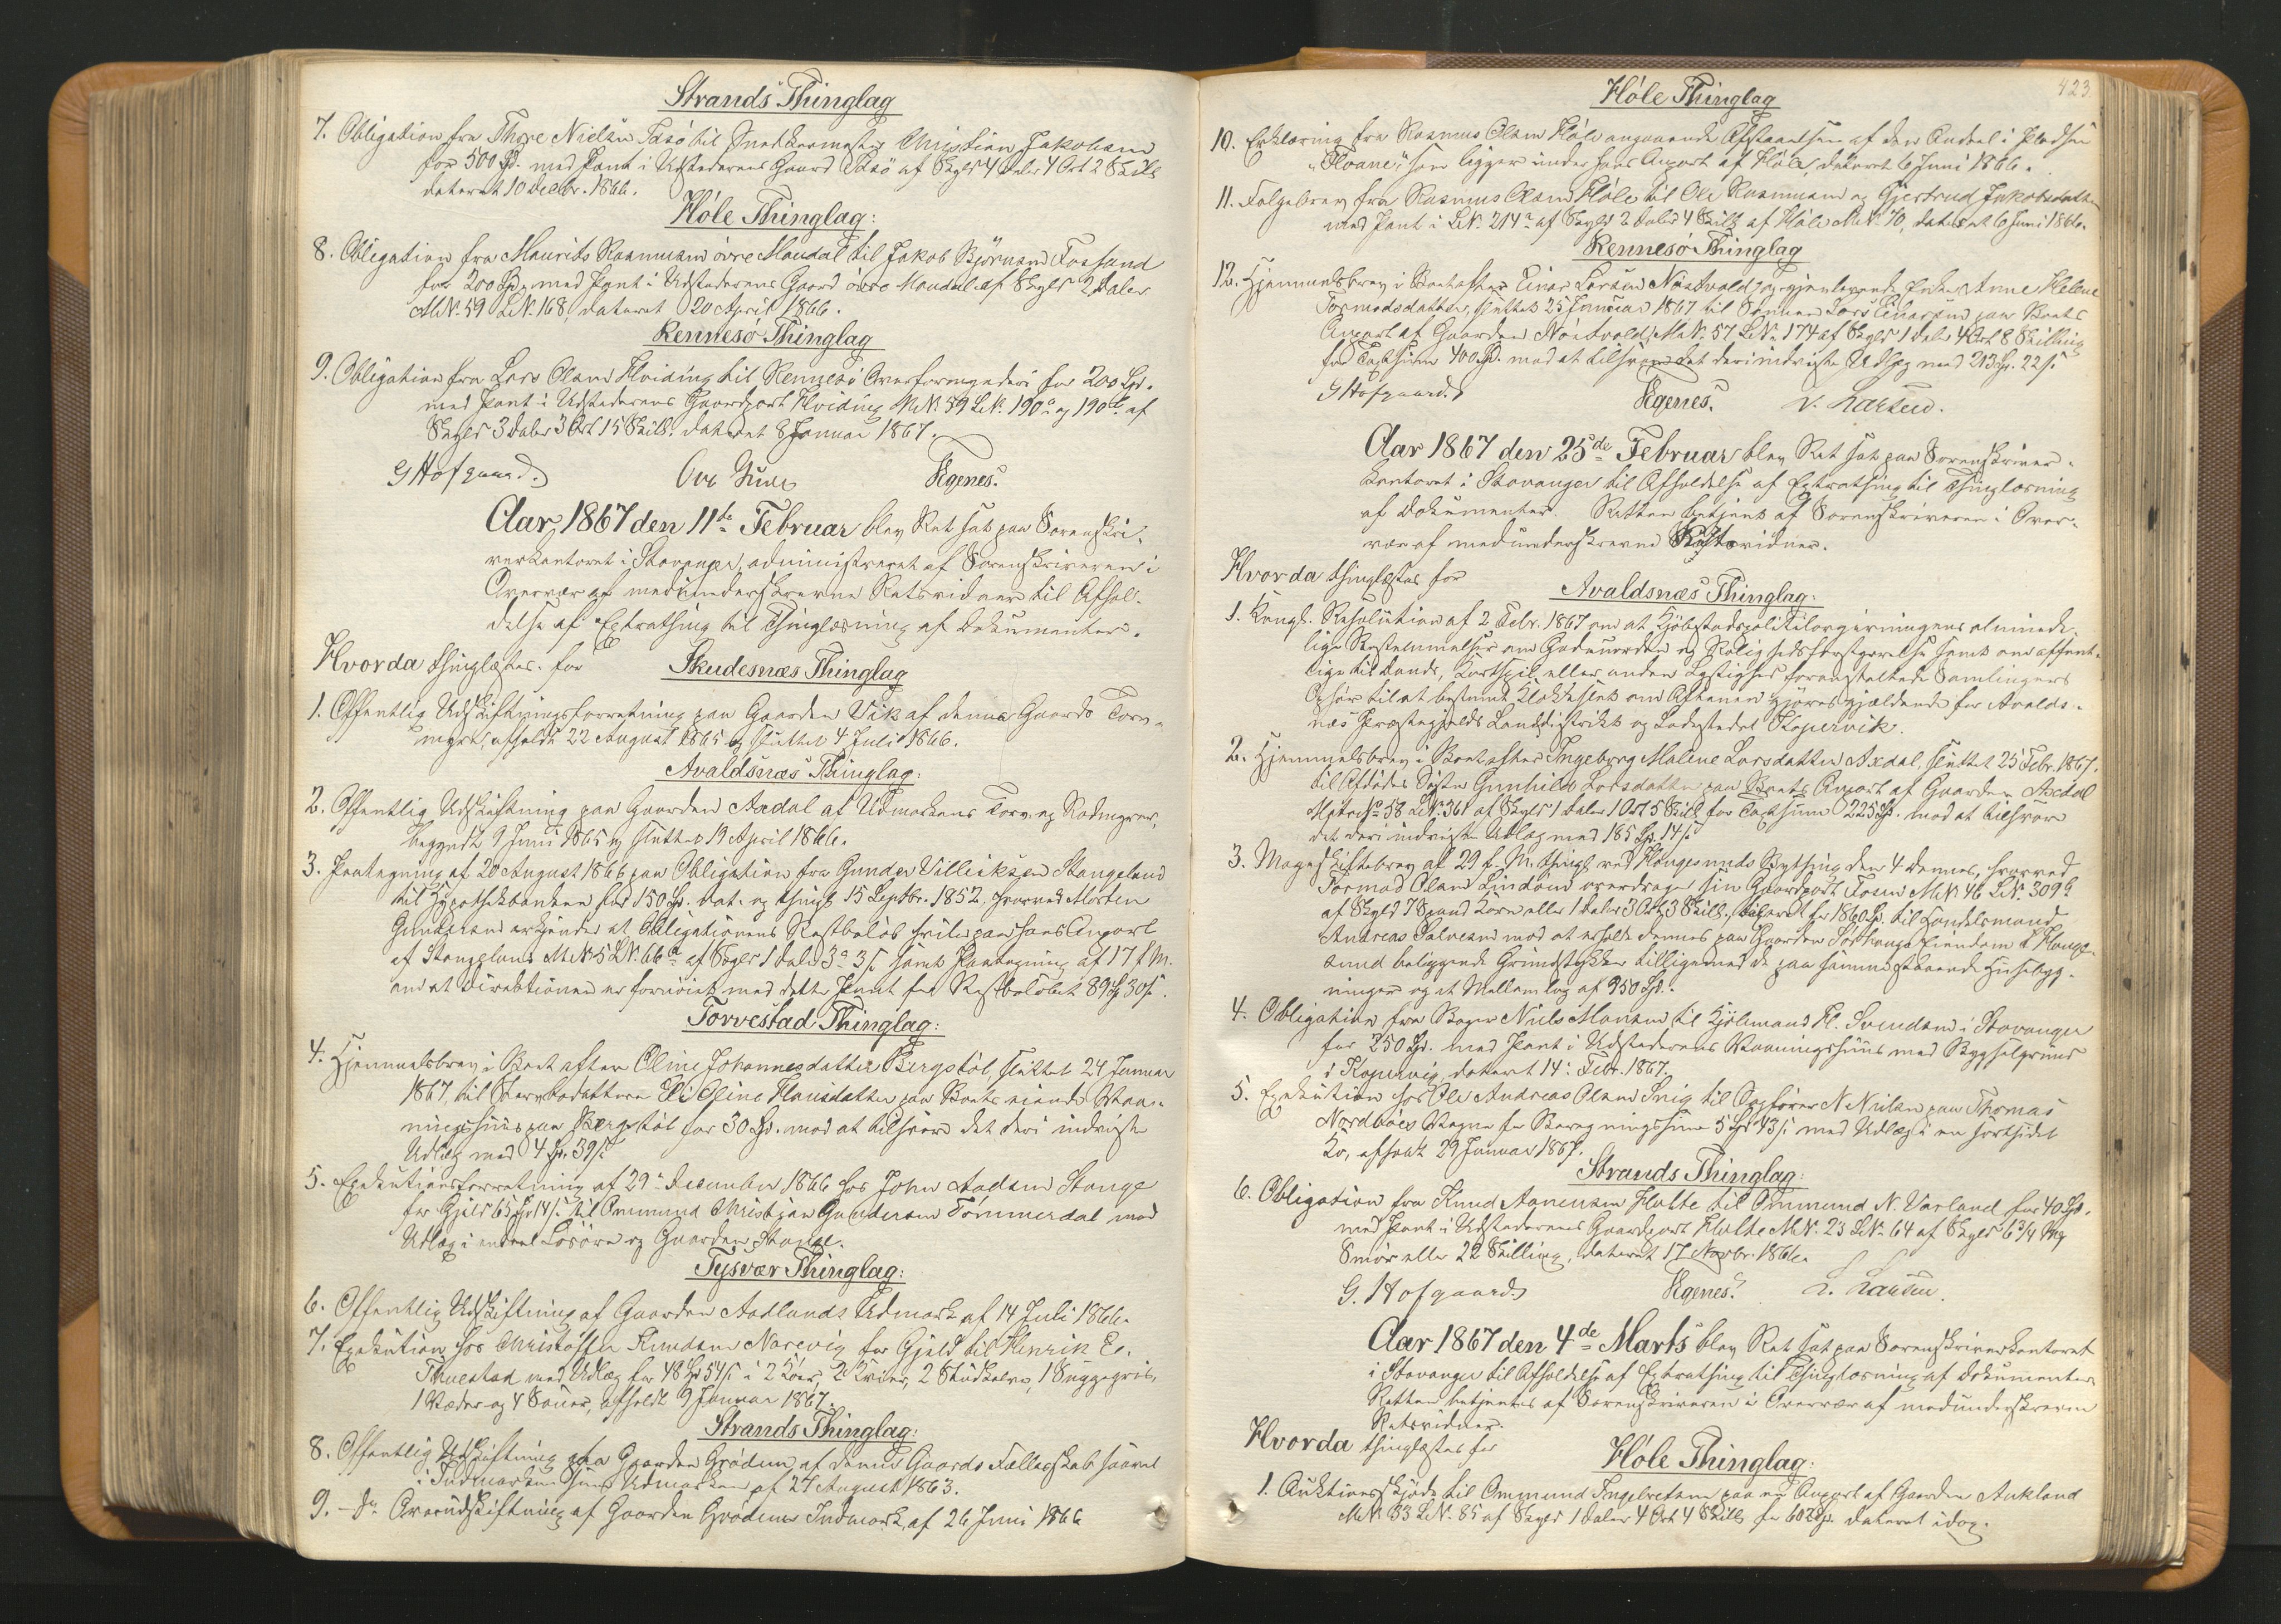 Strands Thinglag
7. Obligation fra Thore Nielsen Tasö til Snedkermester Christian Jakobsen
for 500 Spd. med Pant i Udstederens Gaard Tasö af Skyld 4 Daler 4 Ort 2 Skill
dateret 10 Decbr. 1866.
Höle Thinglag:
8. Obligation fra Maurits Rasmussen övre Maudal til Jakob Björnsen Fossand
for 200 Spd. med Pant i Udstederens Gaard övre Maudal af Skyld 2 Daler
M.N. 59 L.N. 168, dateret 20 April 1866.
Rennesö Thinglag
9. Obligation fra Lars Olsen Hviding til Rennesö Overformynderi for 200 Spd.
med Pant i Udstederens Gaardpart Hviding M.N. 59 L.N. 190a og 190b af
Skyld 3 Daler 3 Ort 15 Skill. dateret 8 Januar 1867.
G Hofgaard. Egenes.
Aar 1867 den 11te Februar blev Ret sat paa Sorenskri-
verkontoret i Stavanger, administreret af Sorenskriveren i
Overvær af medunderskrevne Retsvidner til Afhol-
delse af Extrathing til Thinglæsning af Dokumenter.
Hvorda thinglæstes for Skudesnæs Thinglag
1. Offentlig Udskiftningsforretning paa Gaarden Vik af denne Gaards Torv-
myrer, afholdt 22 August 1865 og sluttet 4 Juli 1866.
Avaldsnæs Thinglag:
2. Offentlig Udskiftning paa Gaarden Axdal af Udmarkens Torv og Rodmyrer,
begyndt 9 Juni 1865 og sluttet 19 April 1866.
3. Paategning af 20 August 1866 paa Obligation fra Gunder Villiksen Stangeland
til Hypothekbanken for 150 Spd. dat. og thingl. 15 Septbr. 1852, hvorved Morten
Gundersen erkjender at Obligationens Restbeløb hviler paa hans Anpart
af Stangeland M.N. 5 L.N. 66a af Skyld 1 Daler 3 Ort 3 s samt Paategning af 17 f. M.
om at Direktionen er fornöiet med dette Pant for Restbelöbet 89 Spd 30 s.
Torvestad Thinglag:
4. Hjemmelsbrev i Boet efter Oline Johannesdatter Bergstöl, sluttet 24 Januar
1867, til Stervbodatteren Eli Oline Hansdatter paa Boets eiende Vaa-
ningshuus paa Bergstöl for 30 Spd. mod at tilsvare det deri indviste
Udlæg med 4 Spd. 39 s
5. Exekutionsforretning af 29 December 1866 hos John Aadsen Stange
for Gjeld 65 Spd 14 s til Ommund Christjan Gundersen Tömmerdal med
Udlæg i endeel Lösöre og Gaarden Stange.
Tysvær Thinglag:
6. Offentlig Udskiftning af Gaarden Aadlands Udmark af 14 Juli 1866.
7. Exekution hos Christoffer Knudsen Narevig for Gjeld til Henrik E.
Thuestad med Udlæg for 48 Spd 54 s i 2 Köer, 2 Kvier, 2 Studkalve, 1 Suggegris,
1 Væder og 4 Souer, afholdt 9 Januar 1867.
Strands Thinglag:
8. Offentlig Udskiftning paa Gaarden Gröden af denne Gaards Fællesskab saavel
i Indmarken som Udmarken af 24 August 1863.
9. - do Overudskiftning af Gaarden Grödens Indmark, af 26 Juni 1866
423
Höle Thinglag
10. Erklæring fra Rasmus Olsen Höle angaaende Afstaaelsen af den Andeel i Pladsen
som ligger under hans Anpart af Höle, dateret 6 Juni 1866.
11. Følgebrev fra Rasmus Olsen Höle til Ole Rasmussen og Gjertrud Jakobsdatter
med Pant i L.N. 214a af Skyld 2 Daler 4 Skill af Höle M.N. 70, dateret 6 Juni 1866.
Rennesö Thinglag
12. Hjemmelsbrev i Boet efter Einar Larsen Nöstvold og gjenlevende Enke Anne Helene
Tormodsdatter, sluttet 25 Januar 1867 til Sönnen Lars Einarsen paa Boets
Anpart af Gaarden Nöstvold M.N. 57, L.N. 174 af Skyld 1 Daler 4 Ort 8 Skilling
for Taxtsum 400 Spd. mod at tilsvare det deri indviste Udlæg med 213 Spd. 22 s
G Hofgaard. Egenes. L. Larsen.
Aar 1867 den 25de Februar blev Ret sat paa Sorenskriver-
kontoret i Stavanger til Afholdelse af Extrathing til Thinglæsning
af Dokumenter. Retten betjent af Sorenskriveren i Over-
vær af medunderskrevne Retsvidner.
Hvorda thinglæstes for
Avaldsnæs Thinglag:
1. Kongl. Resolution af 2 Febr. 1867 om at Kjöbstadspolitilovgivningens alminde-
lige Bestemmelser om Gadeuorden og Rolighedsforstyrrelse samt om offent-
lige til Dands, Kortspil eller anden Lystighed foranstaltede Samlingers
Ophör til et bestemt Klokkeslet om Aftenen gjöres gjældende for Avalds-
næs Præstegjelds Landdistrikt og Ladestedet Kopervik.
2. Hjemmelsbrev i Boet efter Ingeborg Malene Larsdatter Axdal, sluttet 25 Febr. 1867,
til Afdödes Söster Gunhild Larsdatter paa Boets Anpart af Gaarden Axdal
Matr No 58 L.N. 361 af Skyld 1 Daler 1 Ort 5 Skill for Taxtsum 225 Spd. mod at tilsvare
det deri indviste Udlæg med 185 Spd. 14 s
3. Mageskiftebrev af 29 f. M. thingl. ved Haugesunds Bything den 4 dennes, hvorved
Tormod Olsen Lindöen overdrager sin Gaardpart Fosen M.N. 46 L.N. 309b
af Skyld 7 Spand Korn eller 1 Daler 3 Ort 3 Skill. taxeret for 1860 Spd. til Handelsmand
Andreas Salvesen mod at erholde dennes paa Gaarden Sörhauge Eiendom i Hauge-
sund beliggende Grundstykker tilligemed de paa samme staaende Husebyg-
ninger og et Mellemlag af 950 Spd.
4. Obligation fra Bager Niels Monsen til Kjöbmand Hl. Svendsen i Stavanger
for 250 Spd. med Pant i Udstederens Vaaningshuus med Bygselgrund
i Kopervig, dateret 14. Febr. 1867.
5. Exekution hos Ole Andreas Olsen Snig til Sagförer N Nielsen paa Thomas
Nordböes Vegne for Beregningssum 5 Spd 43 s med Udlæg i en sortsidet
Ko, afholdt 29 Januar 1867.
Strands Thinglag:
6. Obligation fra Knud Aanensen Holte til Ommund N. Varland for 40 Spd.
med Pant i Udstederens Gaardpart Holte M.N. 23 L.N. 64 af Skyld 6 3/4 Mrk
Smör eller 22 Skilling, dateret 17 Novbr. 1866.
G. Hofgaard Egenes. L. Larsen.
Aar 1867 den 4de Marts blev Ret sat paa Sorenskriverkontoret
i Stavanger til Afholdelse af Extrathing til Thinglæsning af Dokumenter
Retten betjentes af Sorenskriveren i Overvær af medunderskrevne
Retsvidner.
Hvorda thinglæstes for
Höle Thinglag:
1. Auktionsskjöde til Ommund Ingebretsen paa en Anpart af Gaarden Aukland
M.N. 33 L.N. 85 af Skyld 1 Daler 4 Ort 4 Skill for 602 Spd. dateret idag.